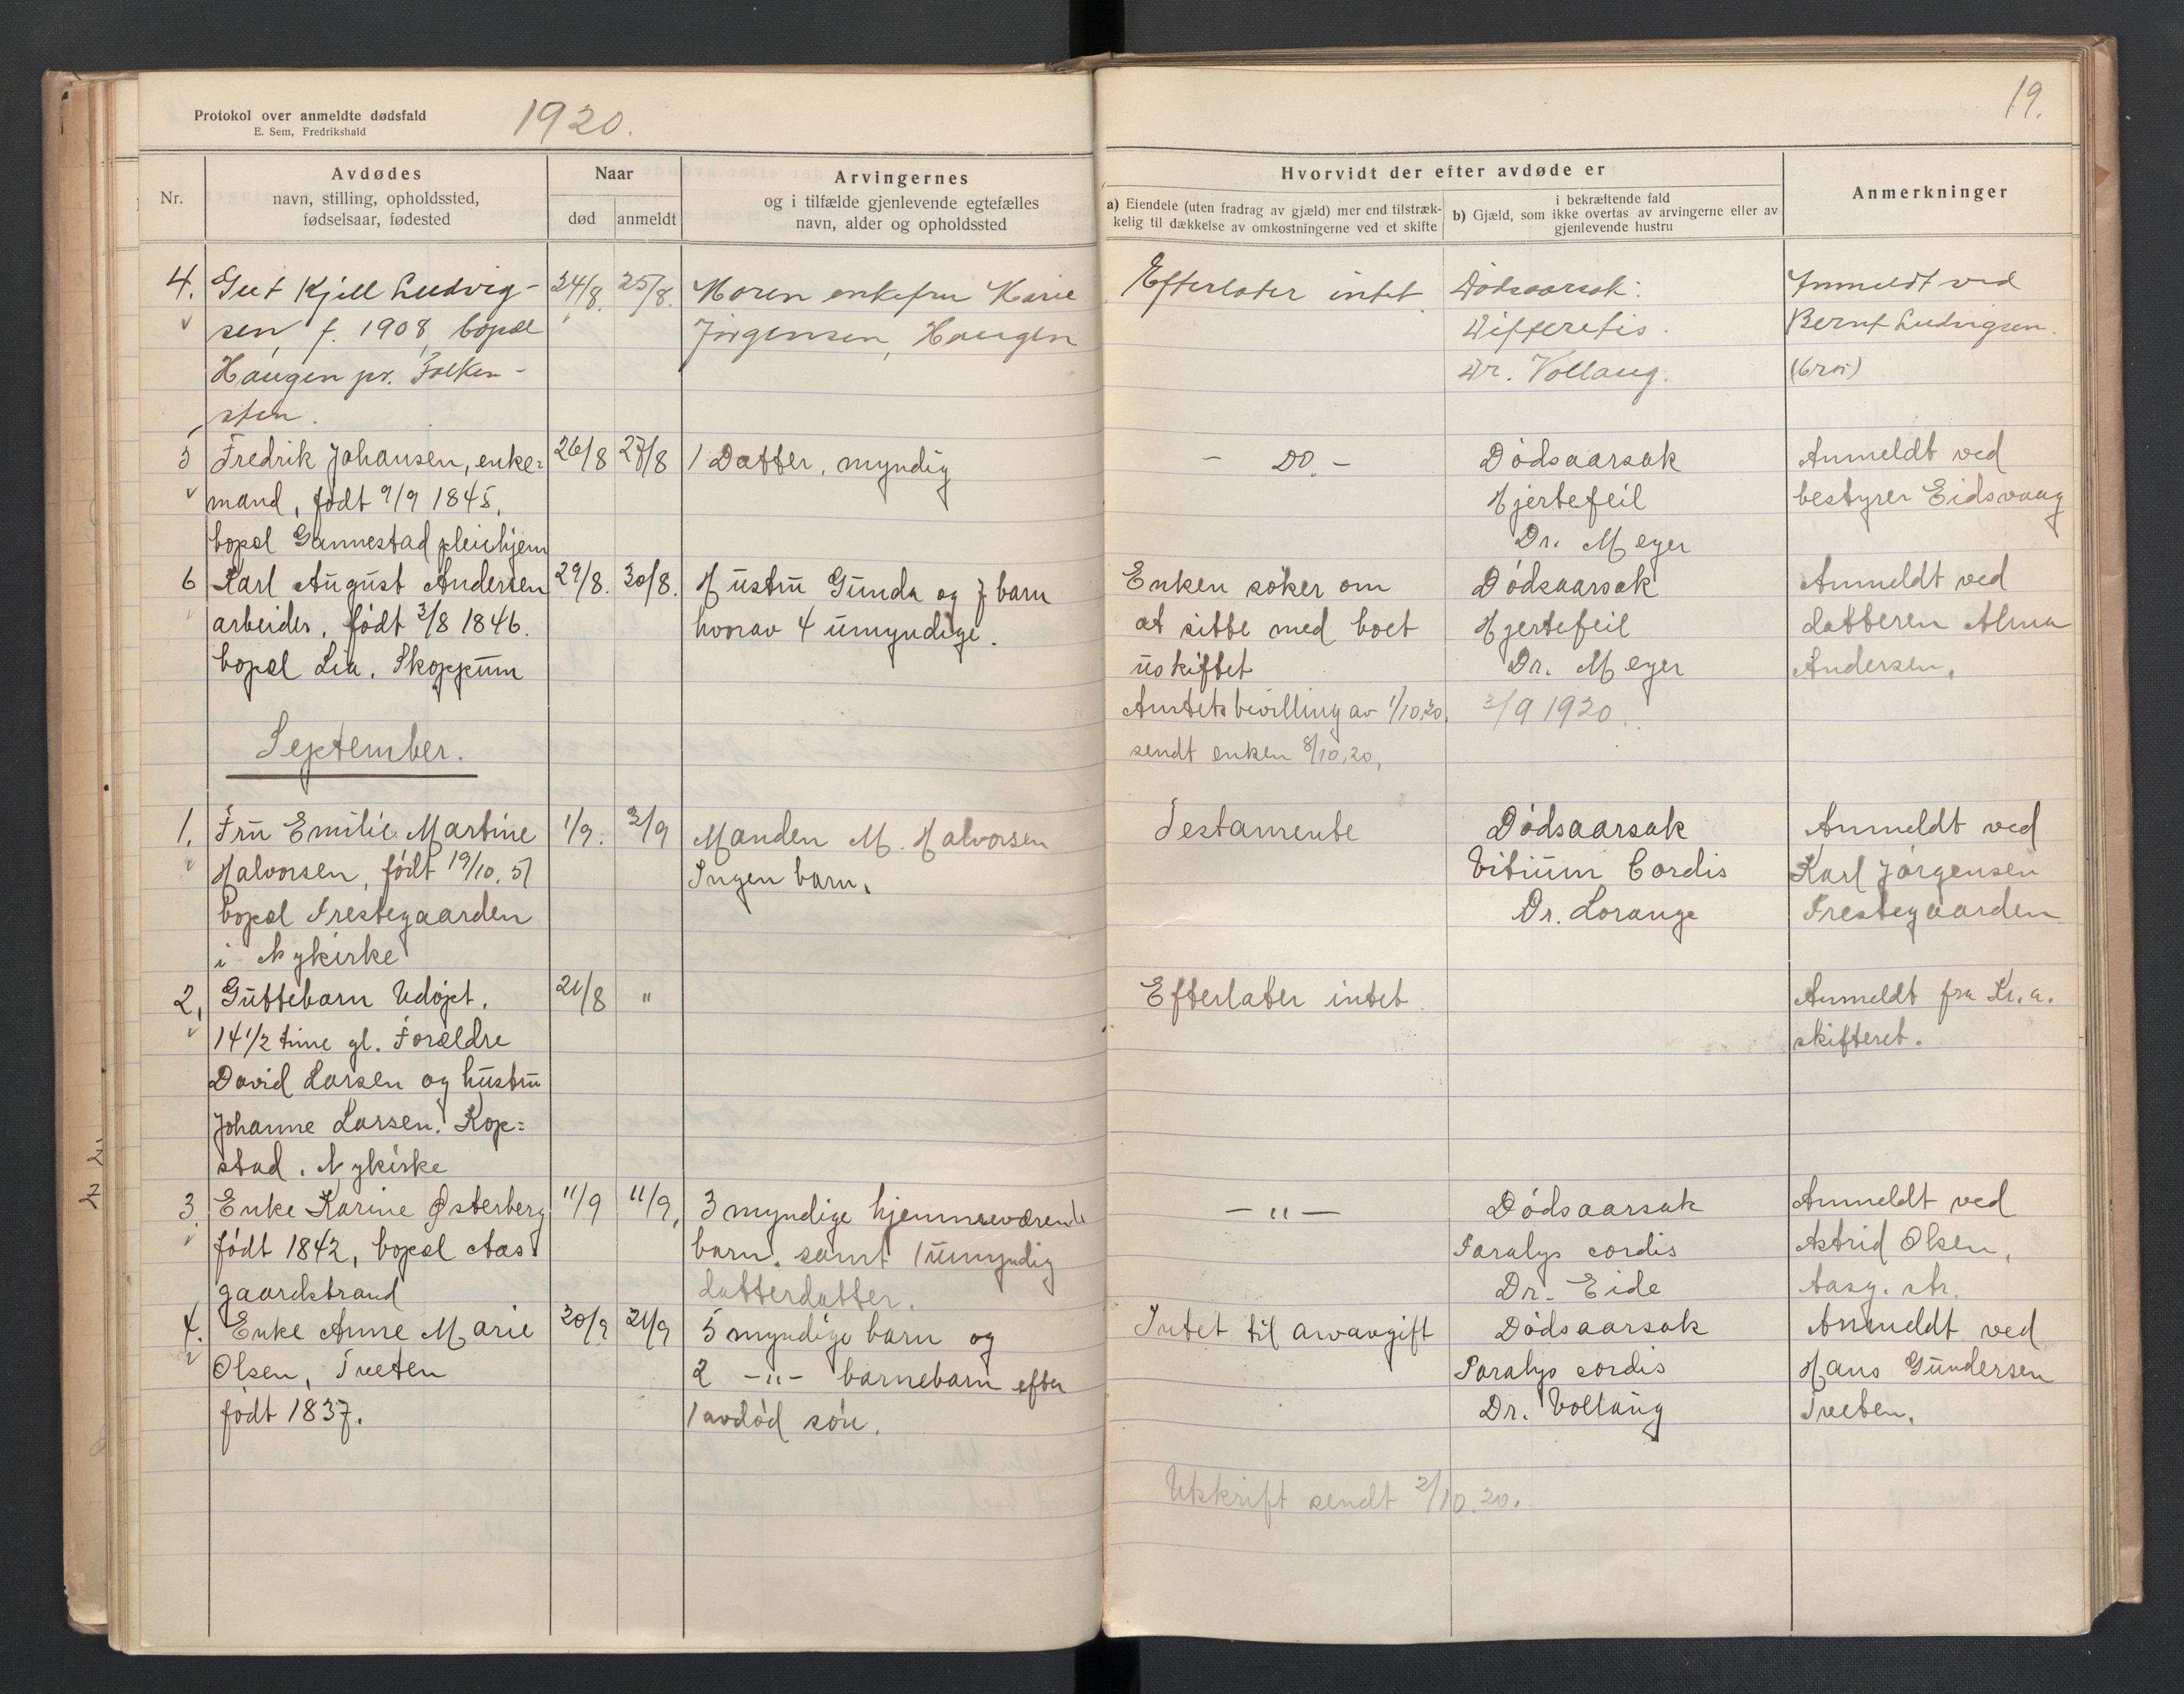 Protokol over anmeldte dødsfald
E. Sem, Fredrikshald
1920.
Nr.
Avdødes
navn, stilling, opholdssted,
fødselsaar, fødested
Naar
død
anmeldt
Arvingernes
og i tilfælde gjenlevende egtefælles
navn, alder og opholdssted
4. Gut Kjell Ludvig- 24/8. 25/8. Moren enkefru Karie
sen, f. 1908, bopæl Jørgensen, Haugen
Haugen pr. Falken-
sten.
5 Fredrik Johansen, enke= 26/8 27/8 1 Datter, myndig
mand, født 9/9 1845,
bopæl Gannestad pleiehjem
6 Karl August Andersen 29/8. 30/8. Hustru Gunda og 7 barn
arbeider, født 3/8 1846. hvorav 4 umyndige.
bopæl Lia, Skoppum
September.
1. Fru Emilie Martine 1/9. 3/9 Manden M. Halvorsen
Halvorsen, født 19/10. 51 Ingen barn.
bopæl Prestegaarden
i Nykirke
2. Guttebarn Udøpt. 21/8 "
14 1/2 time gl. Forældre
David Larsen og hustru
Johanne Larsen. Kop=
stad, Nykirke
3. Enke Karine Østerberg 11/9 11/9, 3 myndige hjemmeværende
født 1842, bopæl Aas barn, samt 1 umyndig
gaardstrand datterdatter.
4. Enke Anne Marie 20/9 21/9 5 myndige barn og
Olsen, Tveten 2 -"- barnebarn efter
født 1837. 1 avdød søn.
19.
Hvorvidt der efter avdøde er
a) Eiendele (uten fradrag av gjæld) mer end tilstræk-
kelig til dækkelse av omkostningerne ved et skifte
i bekræftende fald
b) Gjæld, som ikke overtas av arvingerne eller av
gjenlevende hustru
Anmerkninger
Efterlater intet Dødsaarsak: Anmeldt ved
Difteritis. Bernt Ludvigsen.
Dr. Vollaug. (bror)
- Do. - Dødsaarsak Anmeldt ved
Hjertefeil bestyrer Eidsvaag
Dr. Meyer
Enken søker om Dødsaarsak Anmeldt ved
at sitte med boet Hjertefeil datteren Alma
uskiftet Dr. Meyer Andersen.
Amtets bevilling av 1/10.20. 3/9 1920.
sendt enken 8/10.20,
Testamente Dødsaarsak Anmeldt ved
Vitium Cordis Karl Jørgensen
Dr. Lorange Prestegaarden
Efterlater intet. Anmeldt fra Kr.a.
skifteret.
- " - Dødsaarsak Anmeldt ved
Paralys cordis Astrid Olsen,
Dr. Eide Aasg. str.
Intet til arvavgift Dødsaarsak Anmeldt ved
Paralys cordis Hans Gundersen
Dr. Vollaug Tveten.
Utskrift sendt 2/10.20.